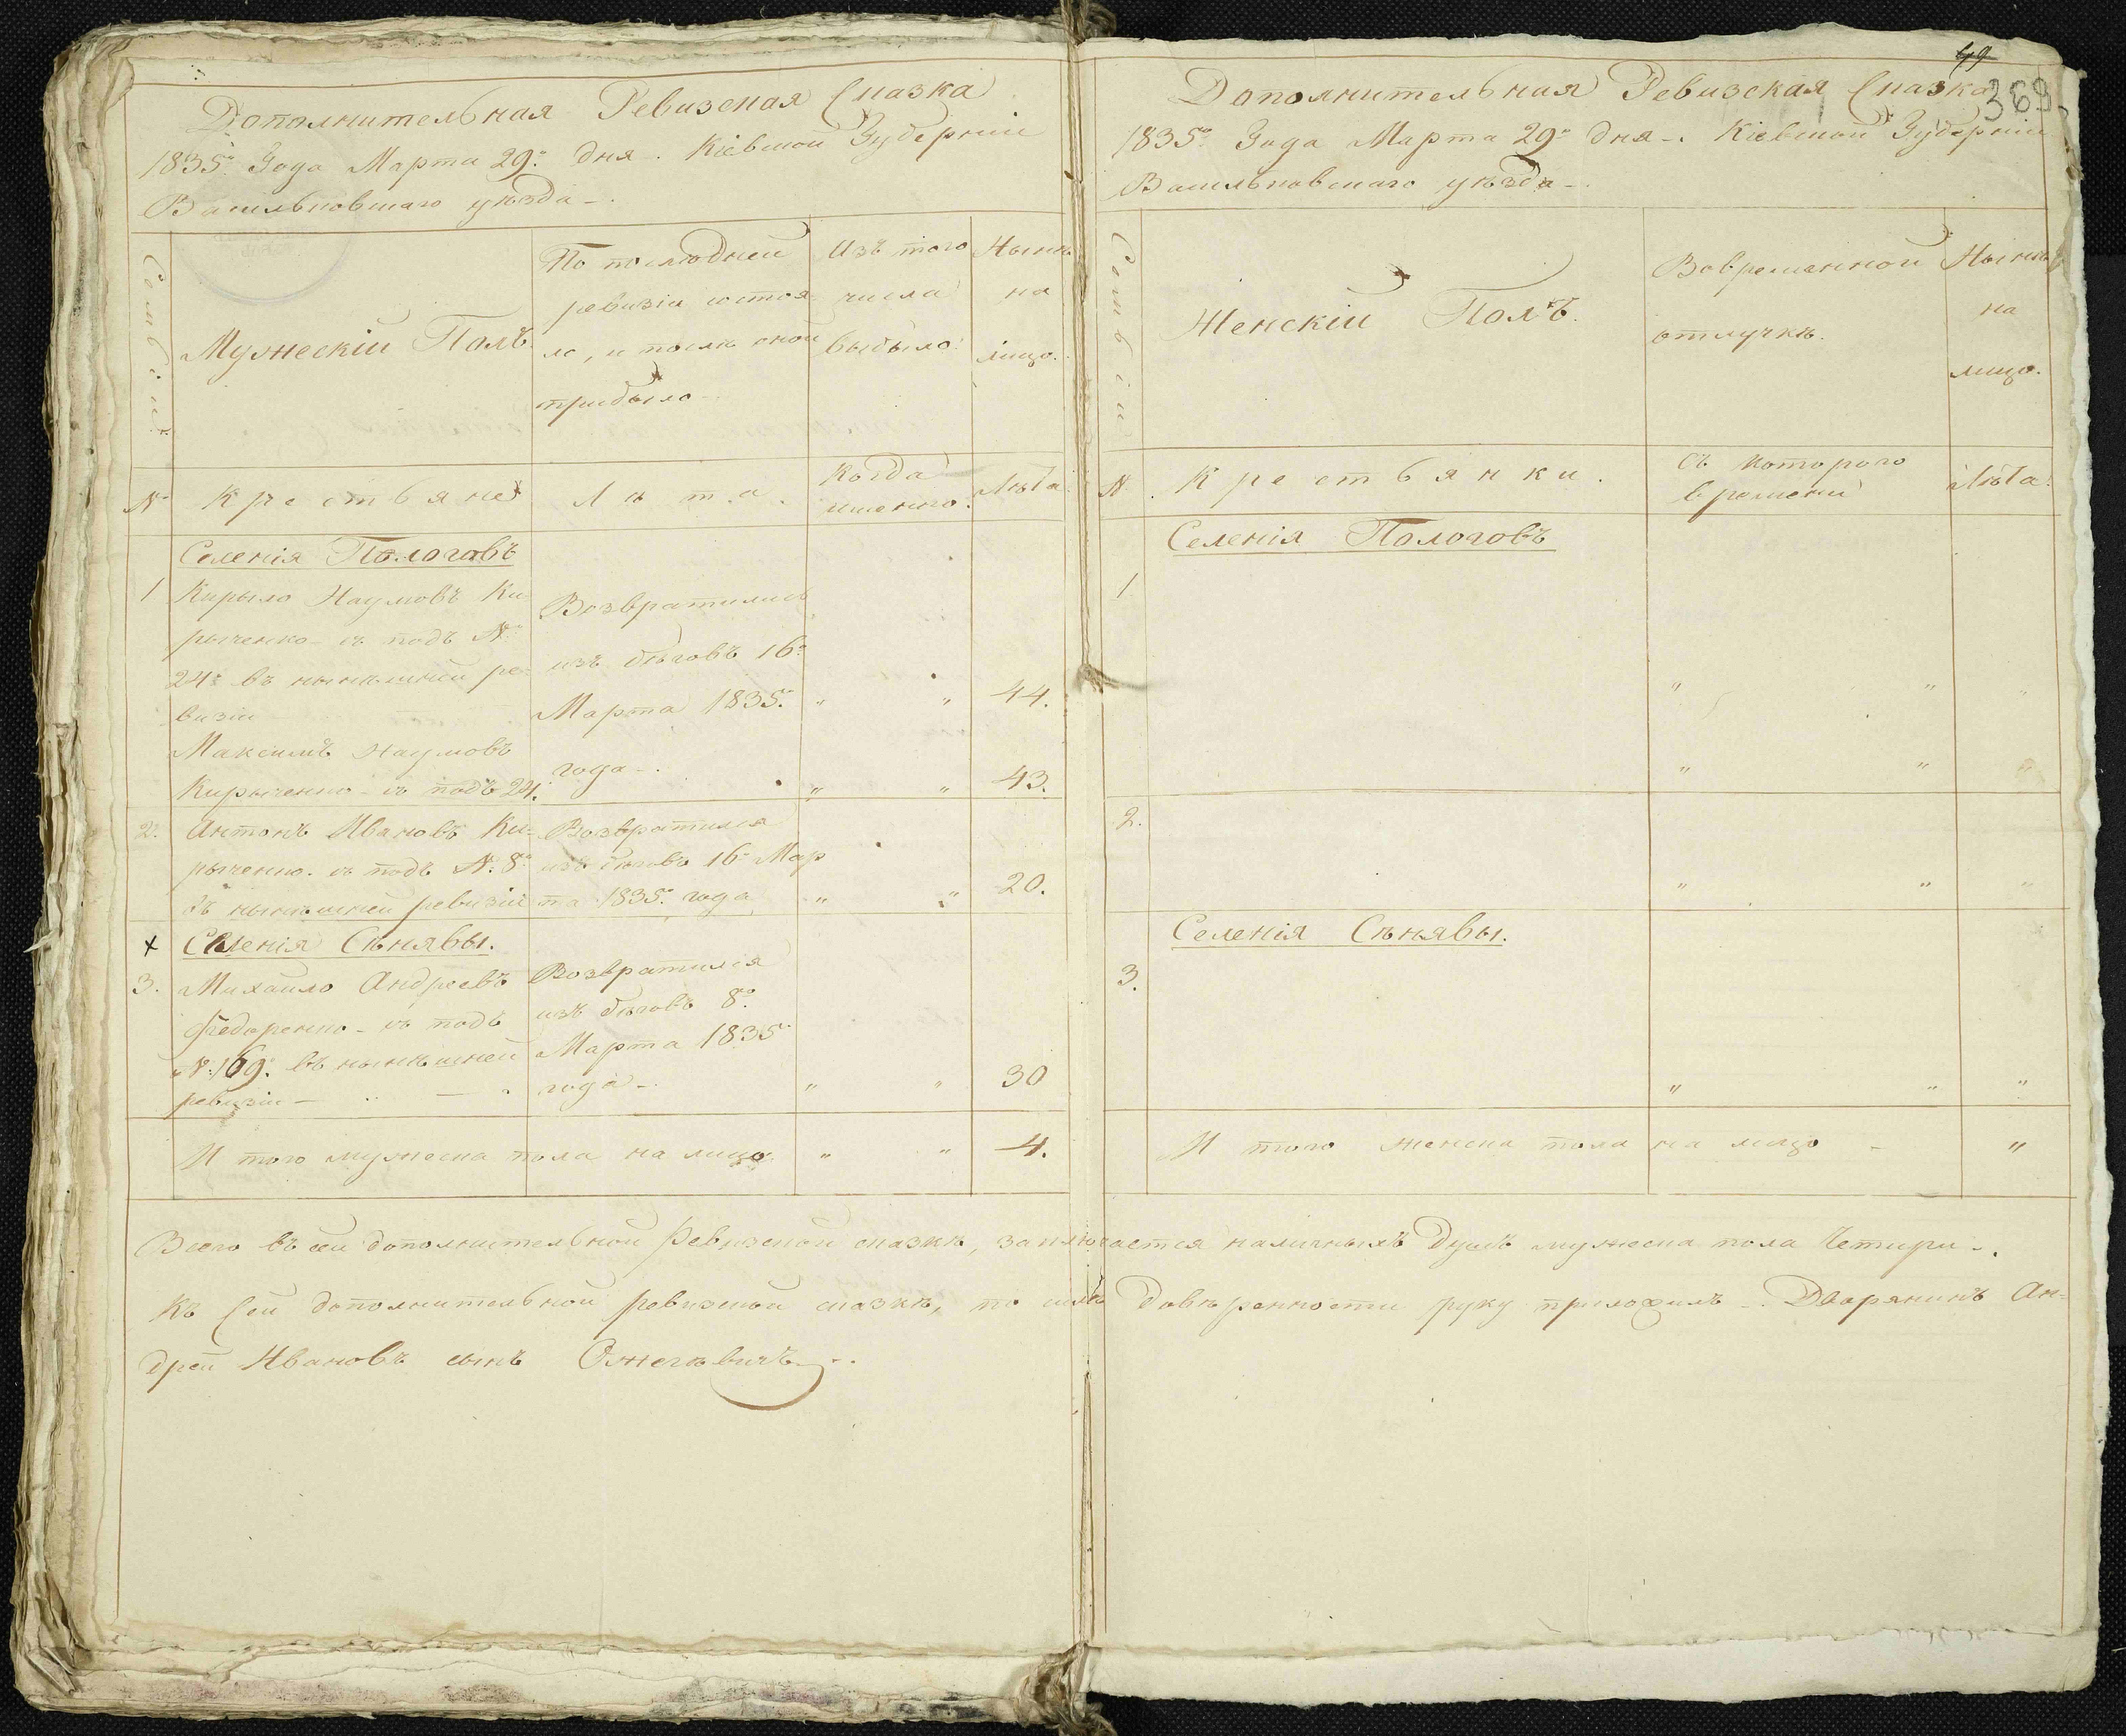 Дополнительная Ревизская Сказка
1835го Года Марта 29го дня. Кіевской Губерніи
Васильковскаго уѣзда.
Семьи
Мужескій Полъ
По последней
ревизіи состоя-
ло, и послѣ оной
прибыло
Изъ того
числа
выбыло.
Нынѣ
на
лицо.
№
Крестьяне
Лѣта.
Когда
именно.
Лѣта.
Селенія Пологовъ
1 Кирыло Наумовъ Ки-
рыченко съ подъ №
24го въ нынѣшней ре-
визіи
Возвратились
изъ бѣговъ 16го
Марта 1835го
года
" " 44.
Максимъ Наумовъ
Кирыченко съ подъ 24.
" " 43.
2. Антонъ Ивановъ Ки-
рыченко. съ подъ №. 8го
въ нынѣшней ревизіи
Возвратился
изъ бѣговъ 16го Мар
та 1835го года
" " 20.
× Селенія Сѣнявы.
3. Михайло Андреевъ
Федоренко съ подъ
№. 169. въ нынѣшней
ревизіи
Возвратился
изъ бѣговъ 8го
Марта 1835го
года
" " 30
И того мужеска пола на лицо " " 4.
49
369
Дополнительная Ревизская Сказка
1835го Года Марта 29го дня. Кіевской Губерніи
Васильковскаго уѣзда.
Семьи
Женскій Полъ.
Вовременной
отлучкѣ.
Нынѣ
на
лицо.
№. Крестьянки.
Съ котораго
времени
Лѣта.
Селенія Пологовъ
1
" " "
" " "
2.
" " "
Селенія Сѣнявы.
3.
" " "
И того женска пола на лицо - "
Всего въ сей дополнительной Ревизской сказкѣ, заключается наличныхъ Душъ мужеска пола Четыри.
Къ Сей дополнительной ревизской сказкѣ, по силѣ Довѣренности руку приложилъ Дворянинъ Ан-
дрей Ивановъ сынъ